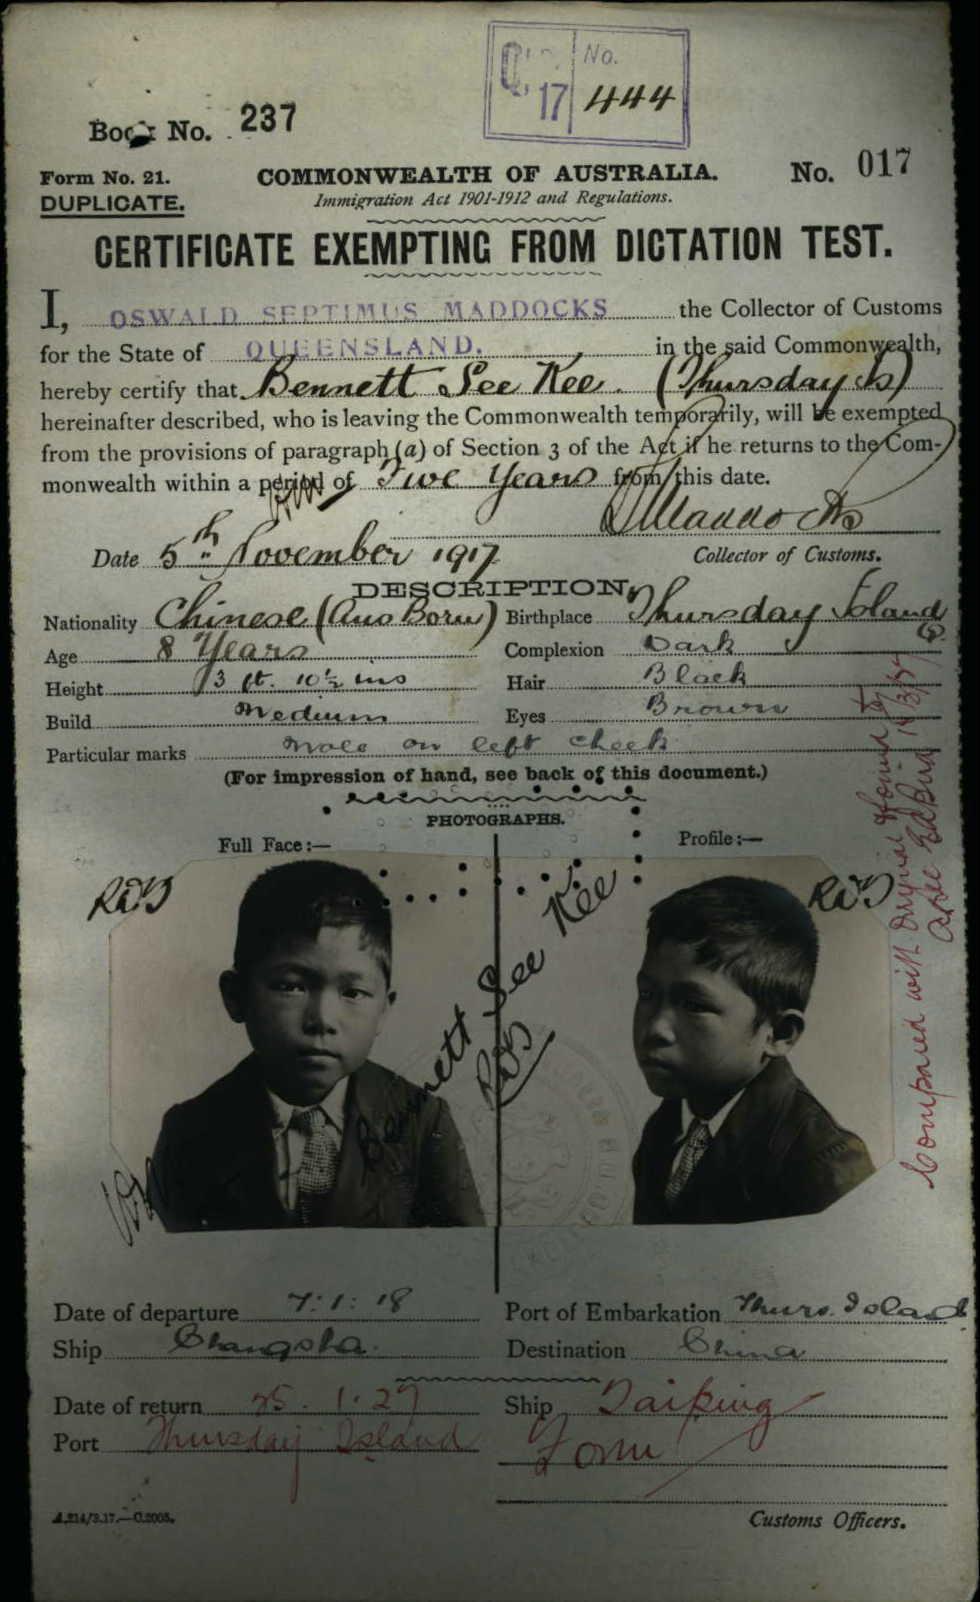 Q. 17 No. 444
Book No. 237
Form No. 21. COMMONWEALTH OF AUSTRALIA. No. 017
DUPLICATE. Immigration Act 1901-1912 and Regulations.
CERTIFICATE EXEMPTING FROM DICTATION TEST.
I, OSWALD SEPTIMUS MADDOCKS the Collector of Customs
for the State of QUEENSLAND. in the said Commonwealth,
hereby certify that Bennett See Kee. (Thursday Is)
hereinafter described, who is leaving the Commonwealth temporarily, will be exempted
from the provisions of paragraph (a) of Section 3 of the Act if he returns to the Com-
monwealth within a period of Five Years from this date.
Date 5th November 1917 Collector of Customs.
DESCRIPTION.
Nationality Chinese (Aus Born) Birthplace Thursday Island Q.
Age 8 Years Complexion Dark
Height 3 ft. 10½ ins Hair Black
Build Medium Eyes Brown
Particular marks Mole on left cheek
(For impression of hand, see back of this document.)
PHOTOGRAPHS.
Full Face:— Profile:—
Bennett See Kee
Compared with
Date of departure 7:1:18 Port of Embarkation Thurs. Island.
Ship Changsha. Destination China
Date of return 25.1.27 Ship Taiping
Port Thursday Island
A.214/3.17.—C.2005. Customs Officers.